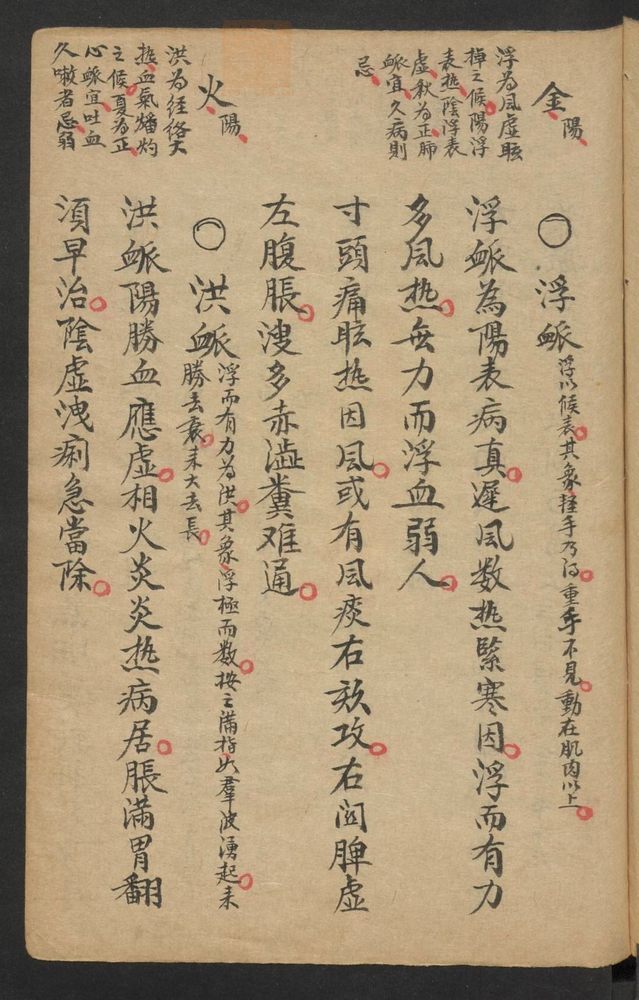 金陽
浮為風虛眩
掉之候陽浮
表热陰浮表
虛秋為正肺
䘑宜久病則
忌
○浮䘑
浮以候表其象轻手乃得重手不見動在肌肉以上
浮䘑為陽表病真遲風数热緊寒因浮而有力
多風热無力而浮血弱人
寸頭痛眩热因風或有風痰右欬攻右関脾虚
左腹脹溲多赤澁糞难通
火陽
洪為经络大
热血氣燔灼
之候夏為正
心䘑宜吐血
久嗽者忌弱
○洪䘑
浮而有力為洪其象浮極而数按之滿指如羣波湧起来
勝去衰来大去長
洪䘑陽勝血應虚相火炎炎热病居脹滿胃翻
須早治陰虛洩痢急當除